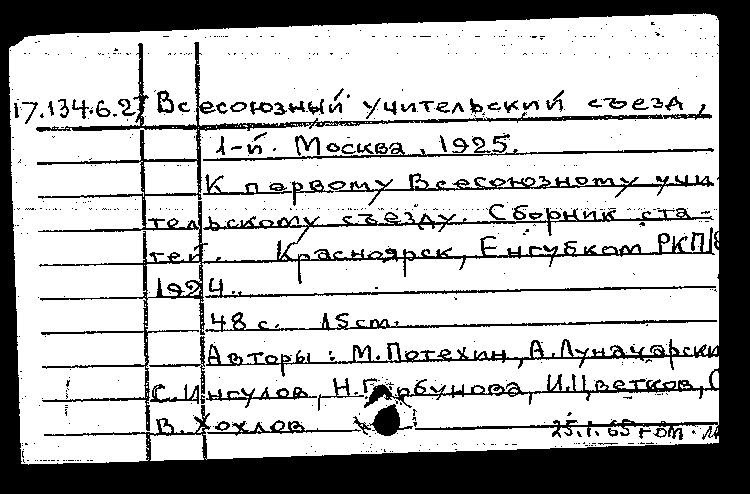 17.134.6.27 Всесоюзный учительский съезд,
1-й. Москва, 1925.
К первому Всесоюзному учи
тельскому съезду. Сборник ста-
тей. Красноярск, Енгубком РКП/
1924.
48 с. 15 cm.
Авторы: М.Потехин, А.Луначарски
С.Ингулов, Н.Горбунова, И.Цветков,
В. Хохлов
25.1.65